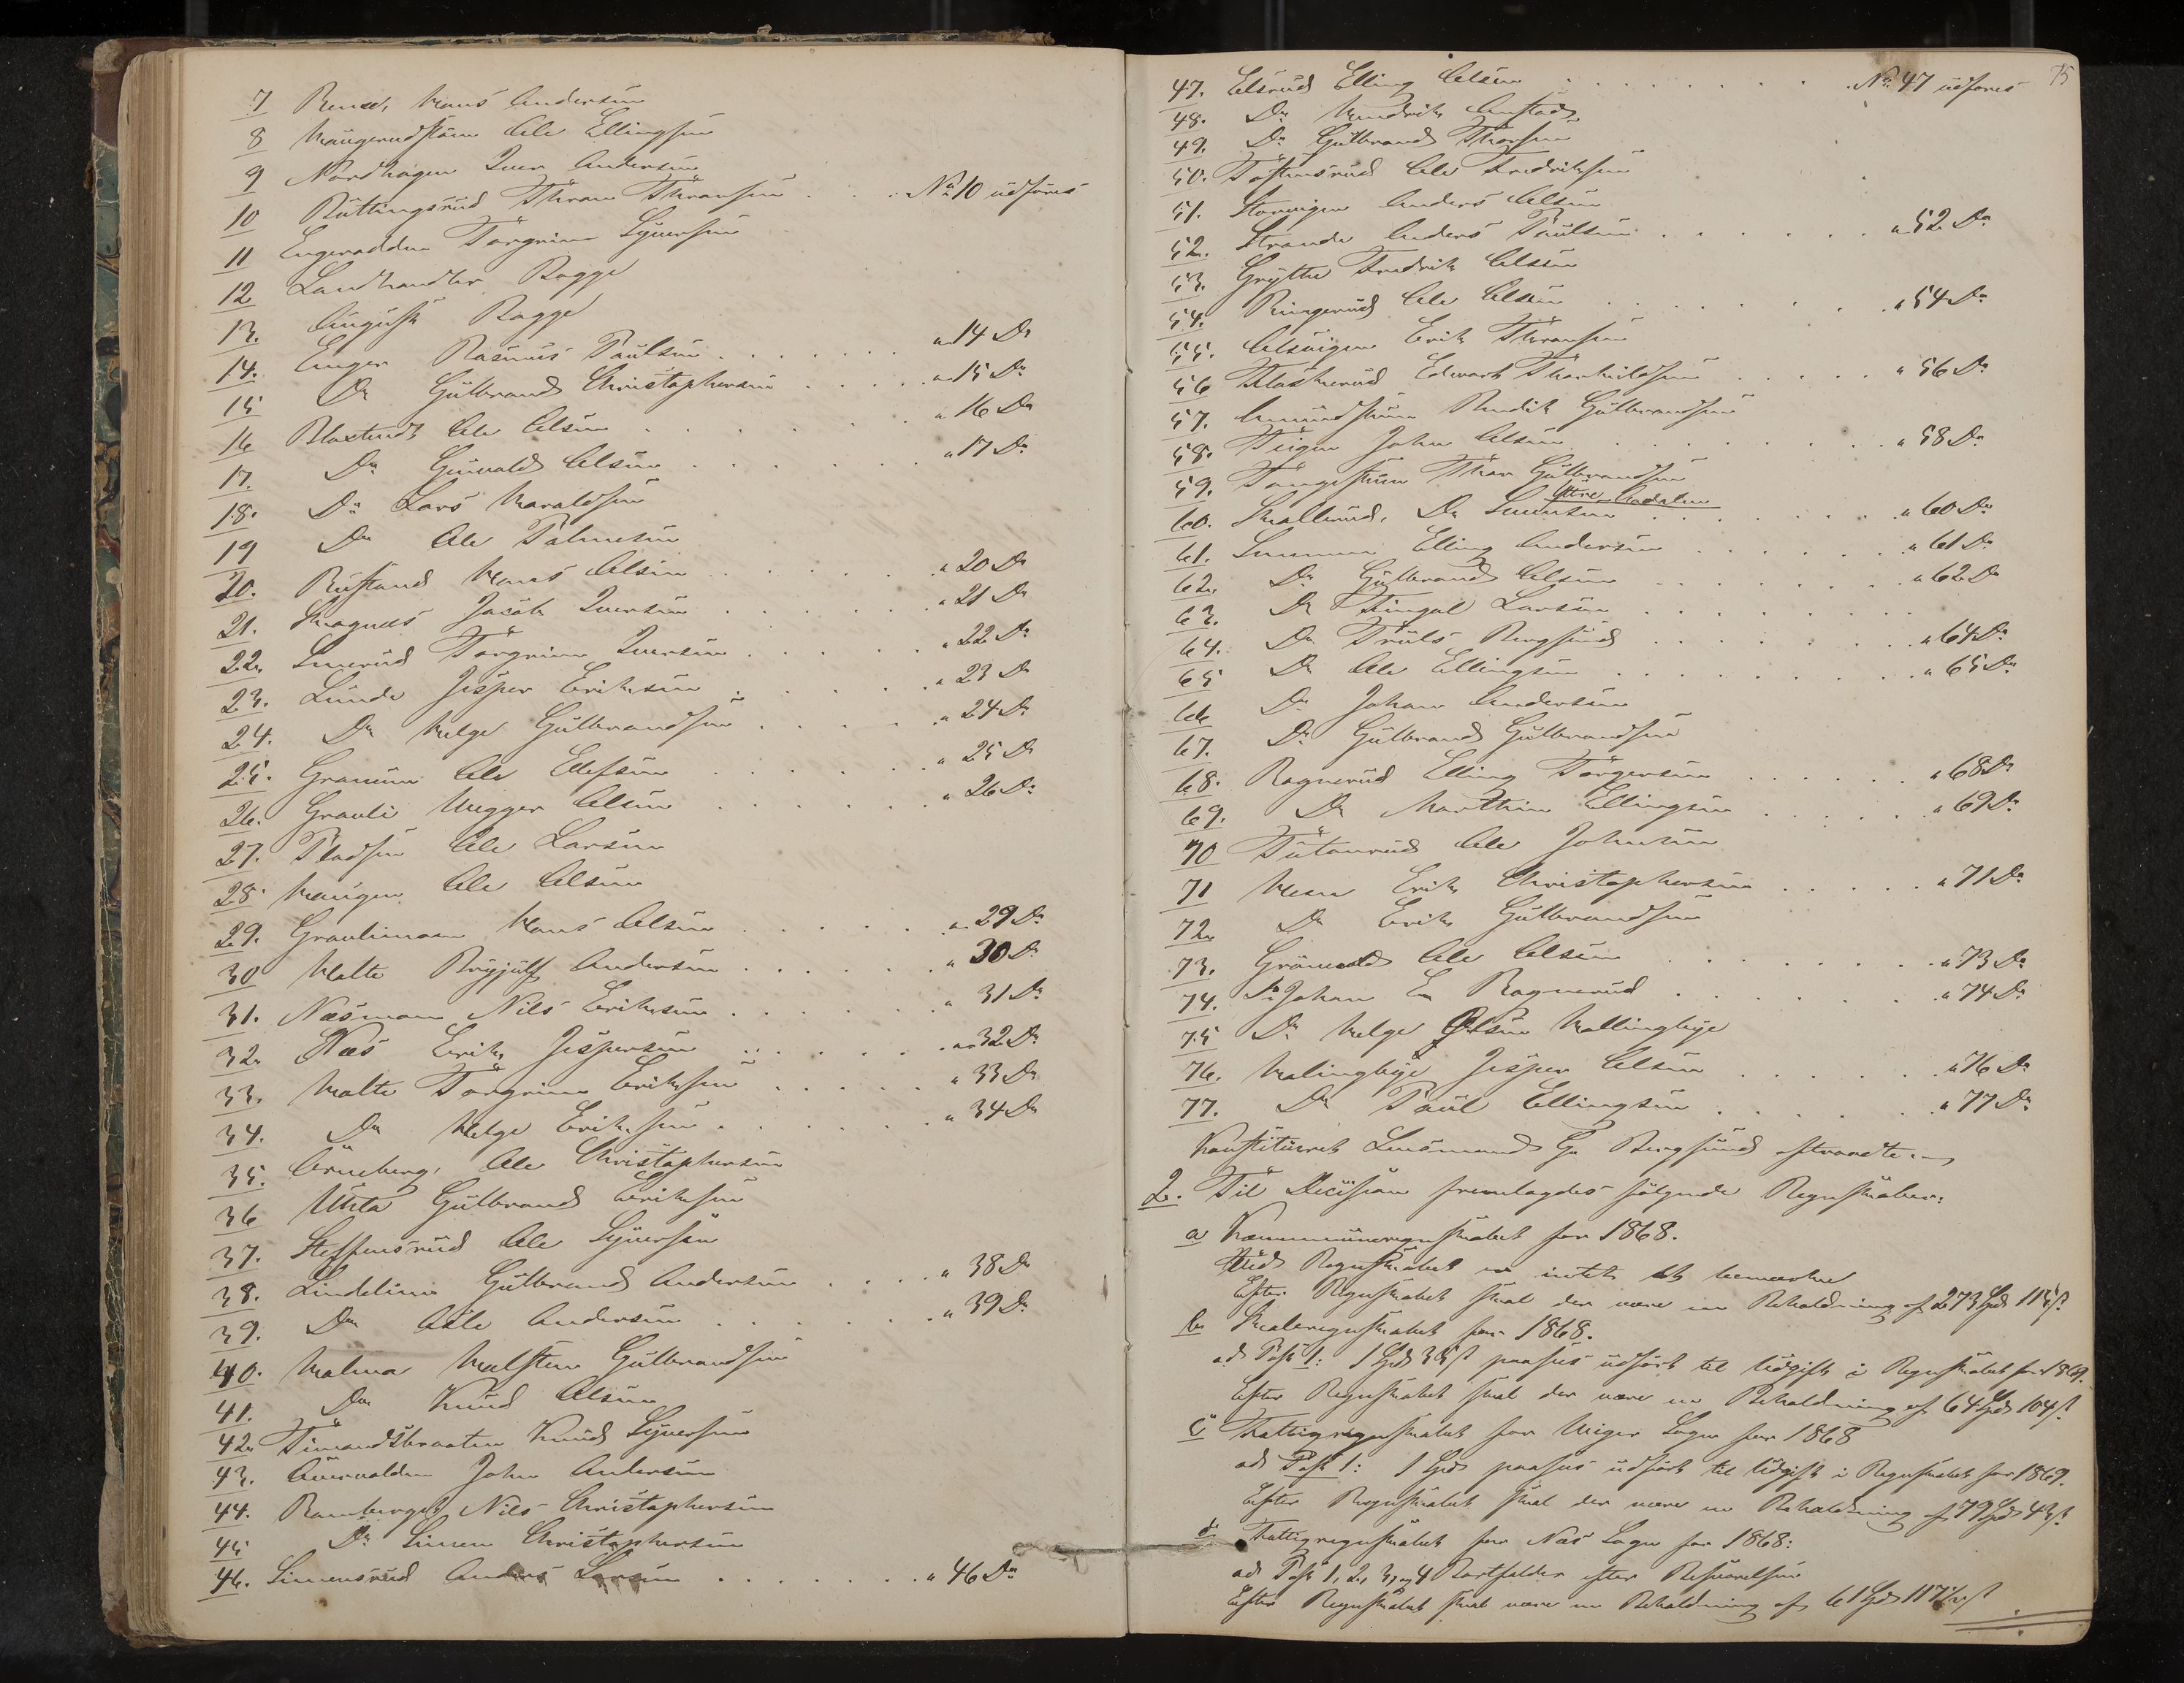 7 Hans Andersen
8 Haugerudstuen Ole Ellingsen
9 Nordhagen Iver Andersen
10 Buttingsrud Thron Thronsen . . . No 10 udføres
11 Engerodden Torgrim Syversen
12 Landhandler Bagge
13. August Bagge
14. Enger Rasmus Paulsen . . . . . . " 14 Do
15 Do Gulbrand Christophersen . . . . . " 15 Do
16 Ole Olsen . . . . . . . " 16 Do
17. Do Gunvald Olsen . . . . . . " 17 Do
18. Do Lars Haraldsen
19 Do Ole Palmesen
20. Rustand Hans Olsen . . . . . . " 20 Do
21. Skagnæs Jacob Iversen . . . . . . " 21 Do
22. Smerud Torgrim Iversen . . . . . " 22 Do
23. Lunde Jesper Eriksen . . . . . . " 23 Do
24. Do Helge Gulbrandsen . . . . . " 24 Do
25. Granum Ole Ellefsen . . . . . . " 25 Do
26. Grauli Olsen . . . . . . " 26 Do
27. Pladsen Ole Larsen
28. Haugen Ole Olsen
29. Hans Olsen . . . . . . " 29 Do
30 Halte Andersen . . . . . . " 30 Do
31. Næsmoen Nils Eriksen . . . . . . " 31 Do
32. Næs Erik Jespersen . . . . . . " 32 Do
33. Halte Torgrim Eriksen . . . . . " 33 Do
34. Do Helge Eriksen . . . . . . " 34 Do
35. Ole Christophersen
36 Gulbrand Eriksen
37. Steffensrud Ole Syversen
38. Lindelien Gulbrand Andersen . . . . " 38 Do
39. Do Andersen . . . . . . " 39 Do
40. Gulbrandsen
41. Do Knud Olsen
42. Knud Syversen
43. John Andersen
44. Ramberget Nils Christophersen
45 Do Simen Christophersen
46. Simensrud Anders Larsen . . . . . . . " 46 Do
75
47. Elsrud Elling Olsen . . . . . . . No 47 udføres
48. Do Hendrik
49. Do Gulbrand Thorsen
50. Tostensrud Ole Fredriksen
51. Storvigen Anders Olsen
52. Strande Anders Paulsen . . . . . . " 52 Do
53. Grytte Fredrik Olsen
54. Ringerud Ole Olsen . . . . . . " 54 Do
55. Olsvigen Erik Thronsen
56 Flaskerud Edvart . . . . . " 56 Do
57. Gulbrandsen
58. John Olsen . . . . . . . " 58 Do
59. Thor Gulbrandsen
Ytre Aadalen
60. Skallerud, Do . . . . . . . " 60 Do
61. Semmen Elling Andersen . . . . . . " 61 Do
62. Do Gulbrand Olsen . . . . . . " 62 Do
63. Do Fingal Larsen . . . . . .
64. Do Truls Bergsund . . . . . . " 64 Do
65 Do Ole Ellingsen . . . . . . . " 65 Do
66 Do Johan Andersen
67. Do Gulbrand Gulbrandsen
68. Ragnerud Elling Torgersen . . . . . " 68 Do
69. Do Marthin Ellingsen . . . . . . " 69 Do
70 Ole Johnsen
71 Heen Erik Christophersen . . . . . " 71 Do
72. Do Erik Gulbrandsen
73. Grønvold Ole Olsen . . . . . . . " 73 Do
74. Do Johan E Ragnerud . . . . . . " 74 Do
75 Do Helge Olsen Hallingbye
76. Halingbye Jesper Olsen . . . . . . " 76 Do
77. Do Paul Ellingsen . . . . . . " 77 Do
Konstitueret Lensmand G. Bergsund
2. Til Decision fremlagdes følgende Regnskaber:
a Kommuneregnskabet for 1868.
Ved Regnskabet er intet at bemærke
Efter Regnskabet skal der være en Beholdning af 273 Spd 115 ß
b Skoleregnskabet for 1868.
ad Post 1: 1 Spd 35 ß paases udført til Udgift i Regnskabet for 1869.
Efter Regnskabet skal der være en Beholdning af 64 Spd 104 ß
c Fattigregnskabet for Viger Sogn for 1868
ad Post 1: 1 Spd paases udført til Udgift i Regnskabet for 1869.
Efter Regnskabet skal der være en Beholdning af 79 Spd 43 ß
d Fattigregnskabet for Næs Sogn for 1868:
ad Post 1, 2, 3, og 4 Bortfalder efter Besvarelsen
Efter Regnskabet skal være en Beholdning af 61 Spd 117 ½ ß